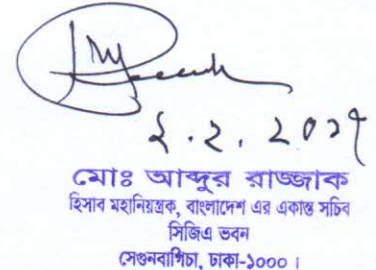 ২.২.২০১৭
মোঃ আব্দুর রাজ্জাক
হিসাব মহানিয়ন্ত্রক, বাংলাদেশ এর একান্ত সচিব
সিজিএ ভবন
সেগুনবাগিচা, ঢাকা-১০০০।